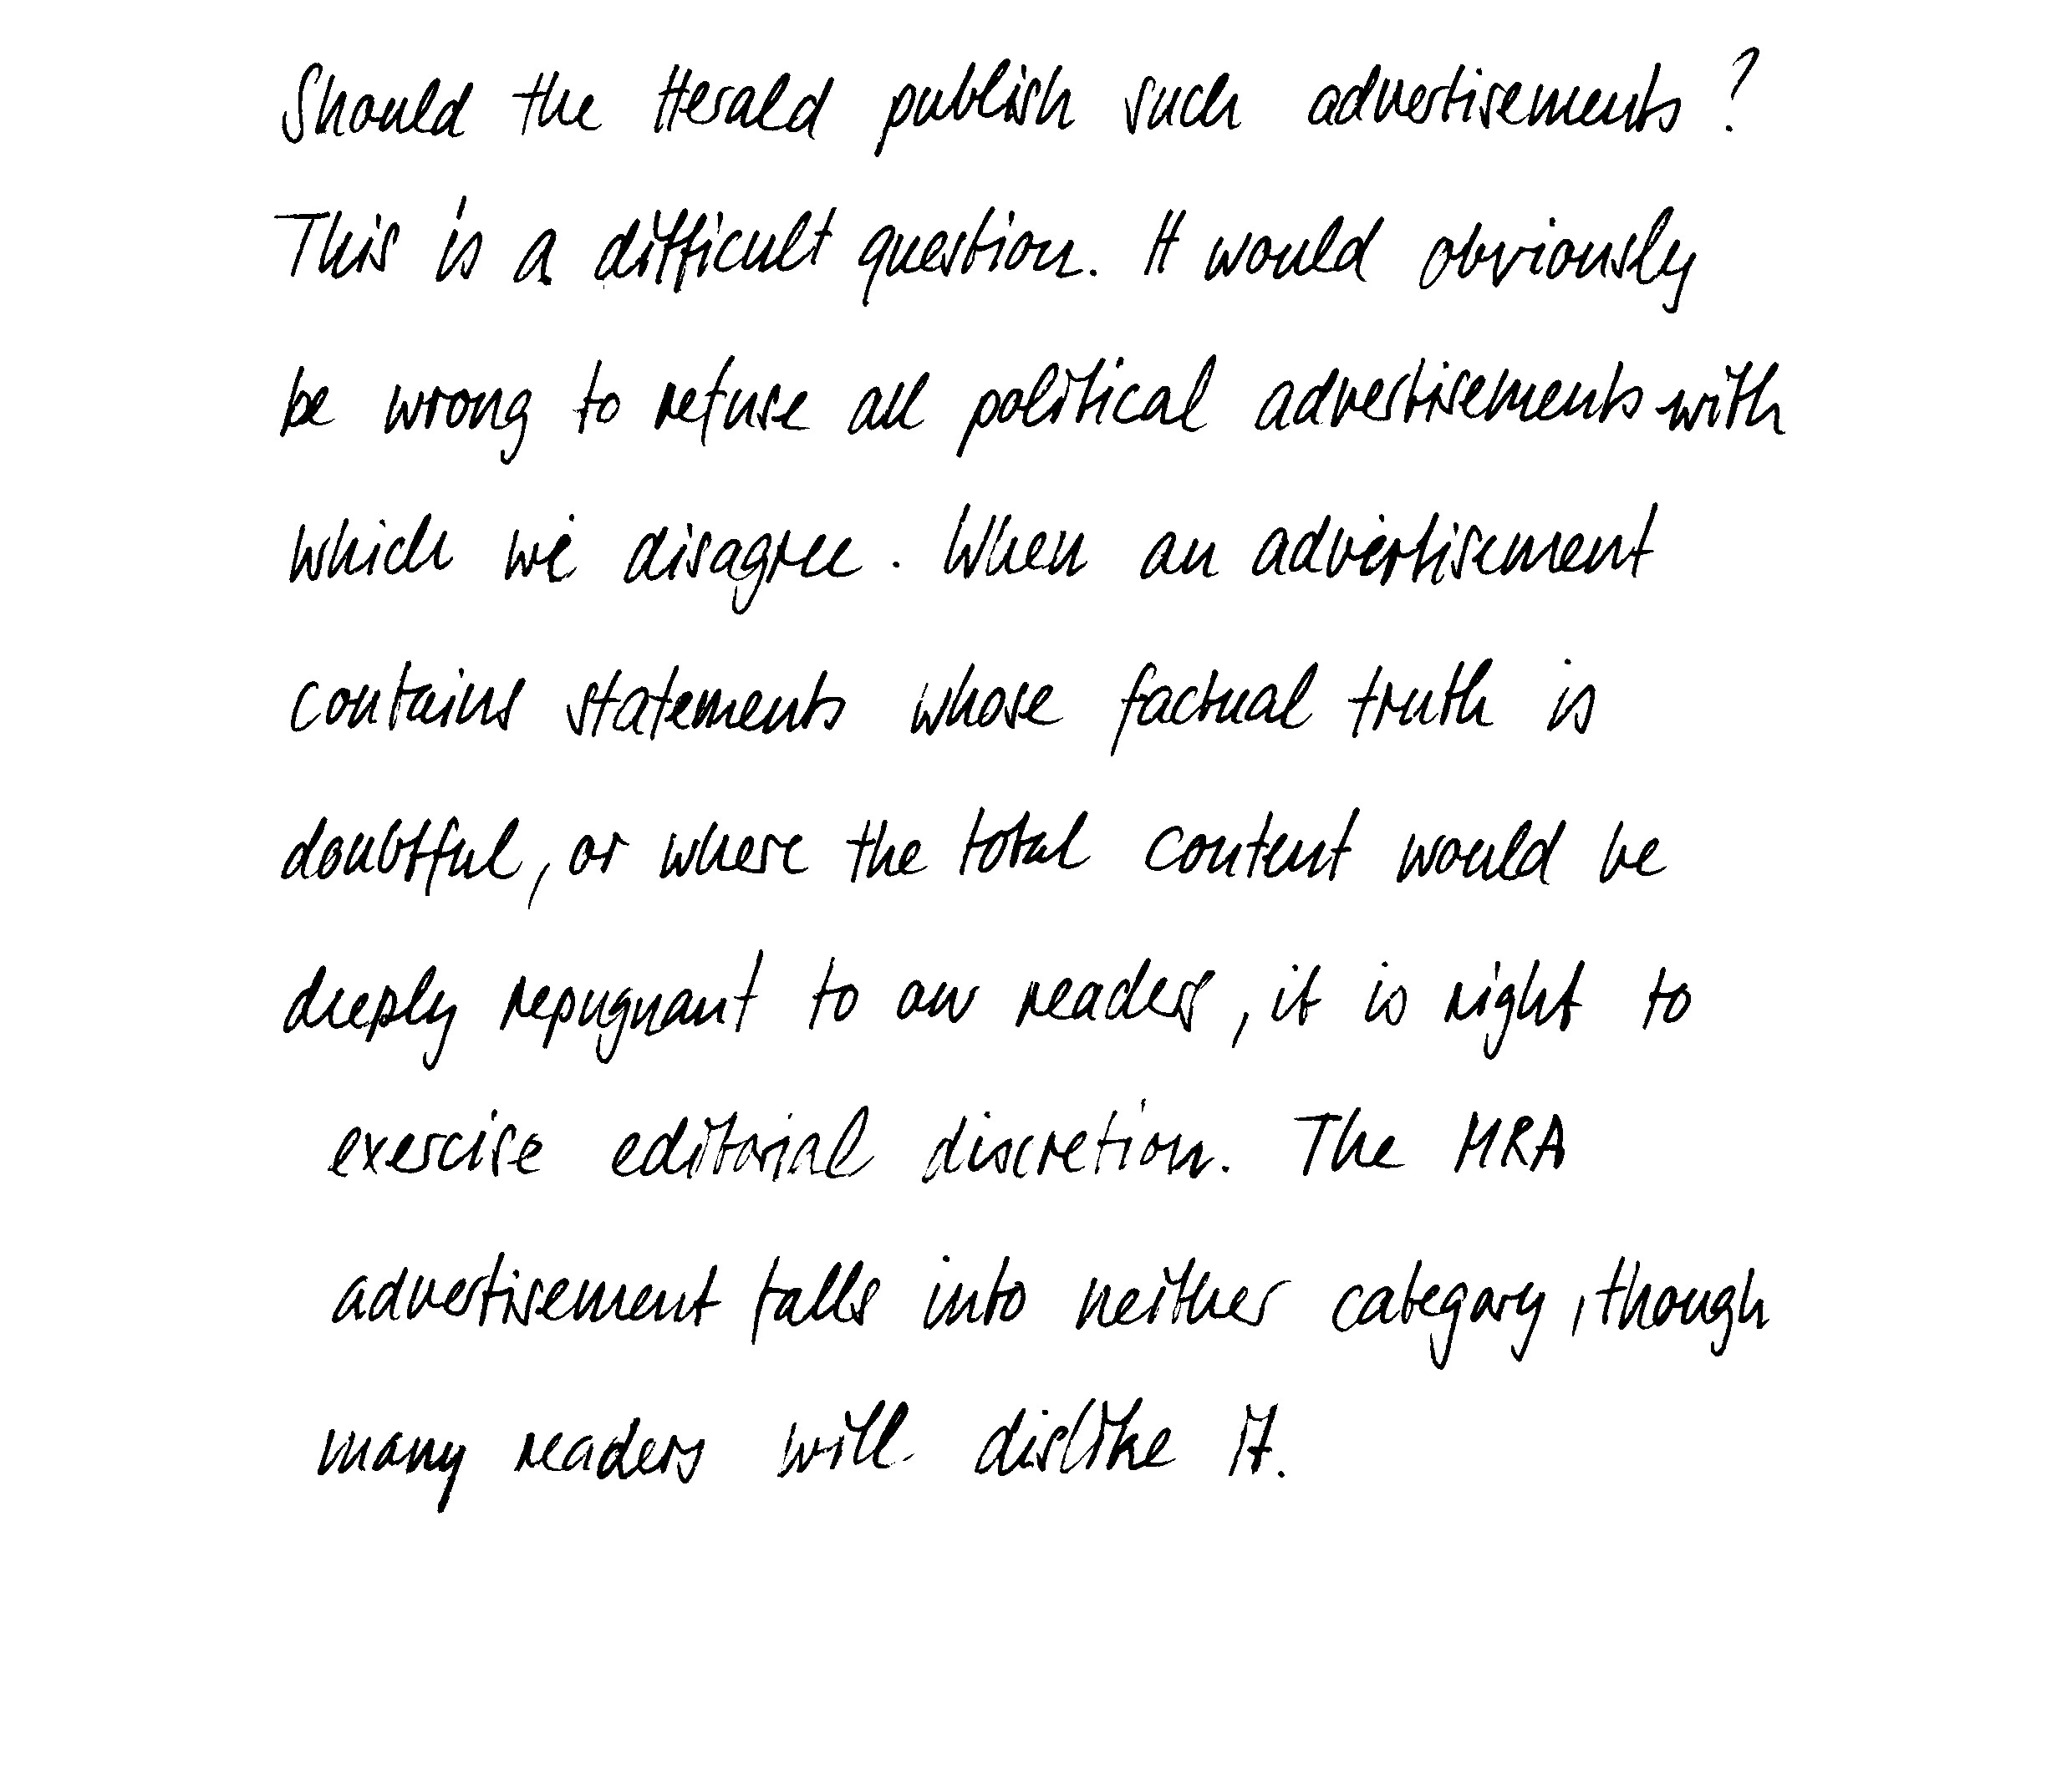 Should the Herald publish such advertisements?
This is a difficult question. It would obviously
be wrong to refuse all political advertisements with
which we disagree. When an advertisement
contains statements whose factual truth is
doubtful, or where the total content would be
deeply repugnant to our readers, it is right to
exercise editorial discretion. The MRA
advertisement falls into neither category, though
many readers will dislike it.